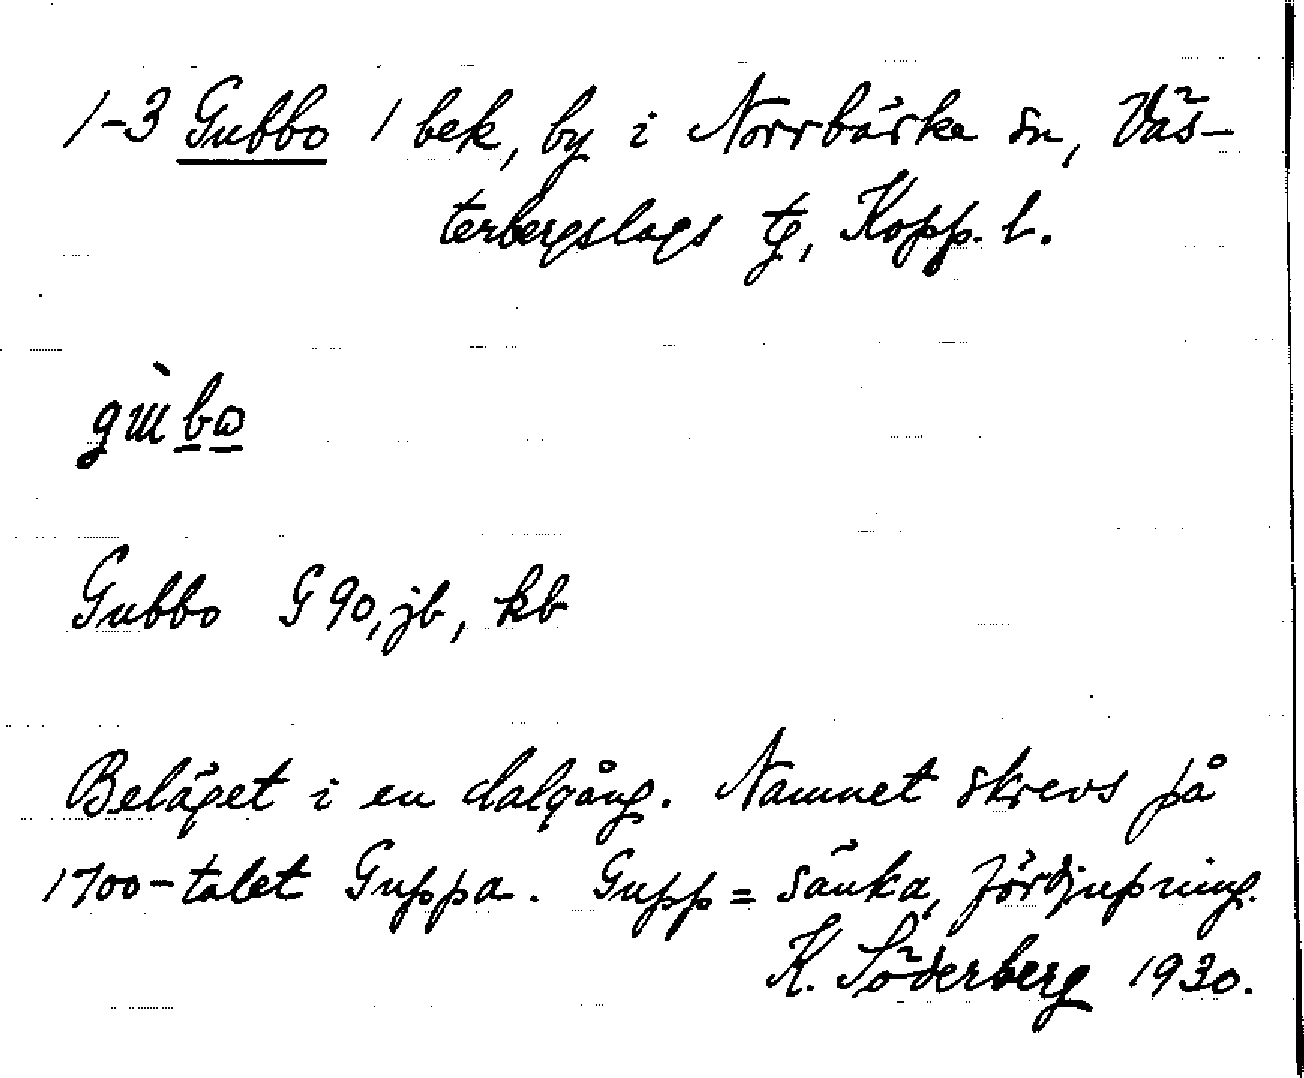 1-3 Gubbo 1 bek, by i Norrbärke sn, Väs-
terbergslags tg, Kopp. l.
Gubbo G 90, jb, kb
Beläget i en dalgång. Namnet skrevs på
1700-talet Guppa. Gupp = sänka, fördjupning.
K. Söderberg 1930.